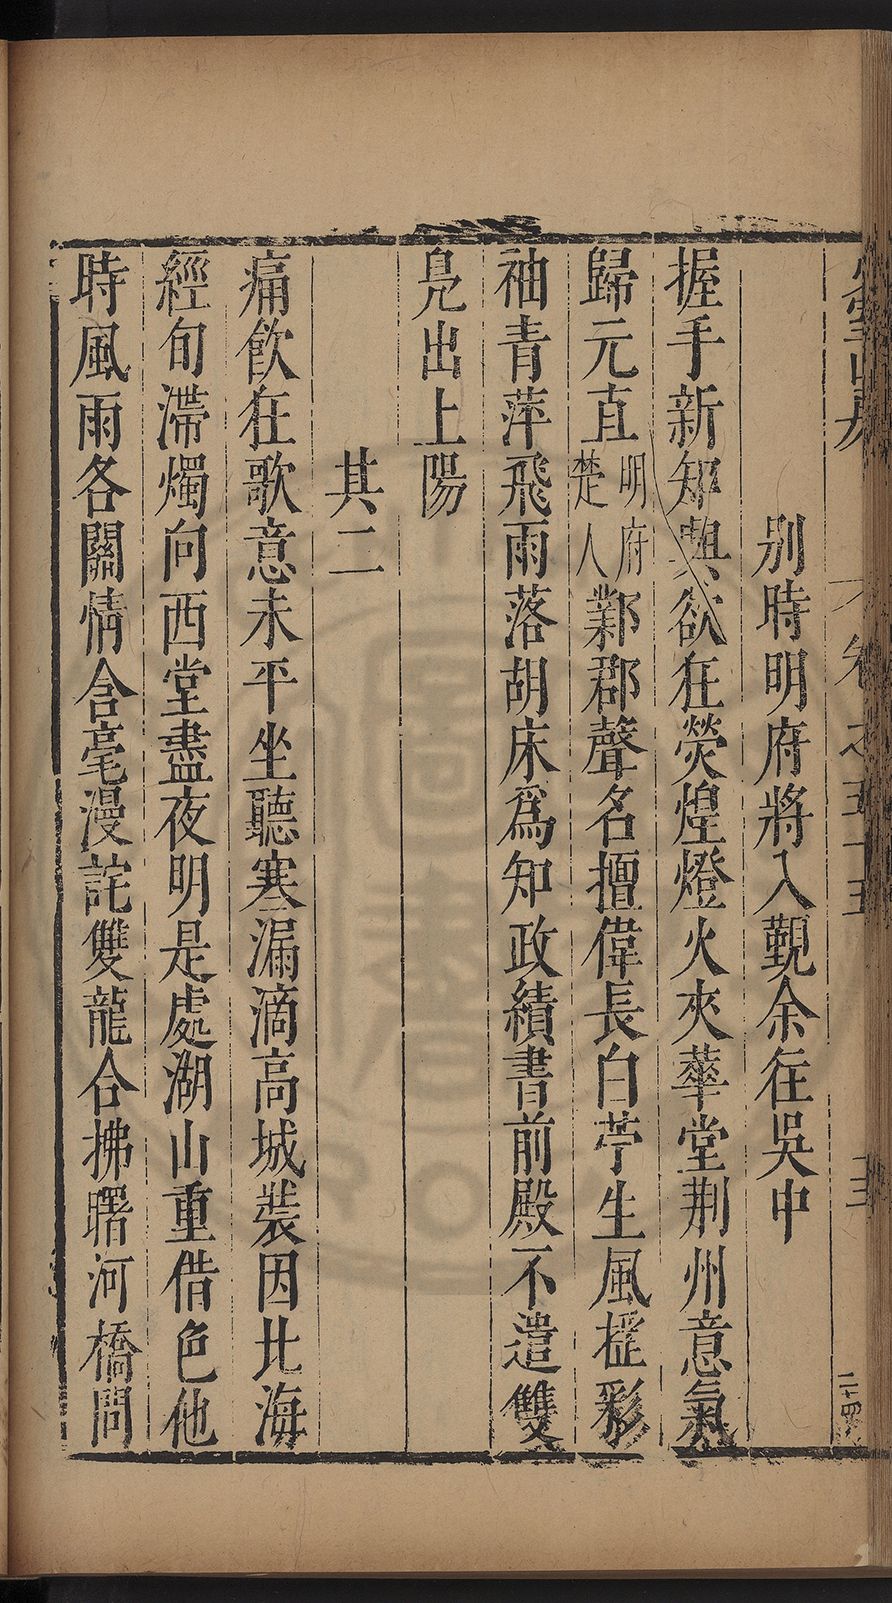 卷之五十五
二十四
別時明府將入覲余往吳中
握手新知興欲狂熒煌燈火夾華堂荆州意氣
歸元直明府楚人鄴郡聲名擅偉長白苧生風搖彩
袖青萍飛雨落胡床爲知政績書前殿不遣雙
鳧出上陽
其二
痛飲狂歌意未平坐聽寒漏滴高城裝因北海
經旬滯燭向西堂盡夜明是處湖山重借色他
時風雨各關情含毫漫詫雙龍合拂曙河橋問